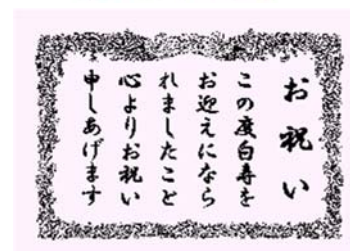 お祝い
この度白寿を
お迎えになら
れましたこと
心よりお祝い
申しあげます